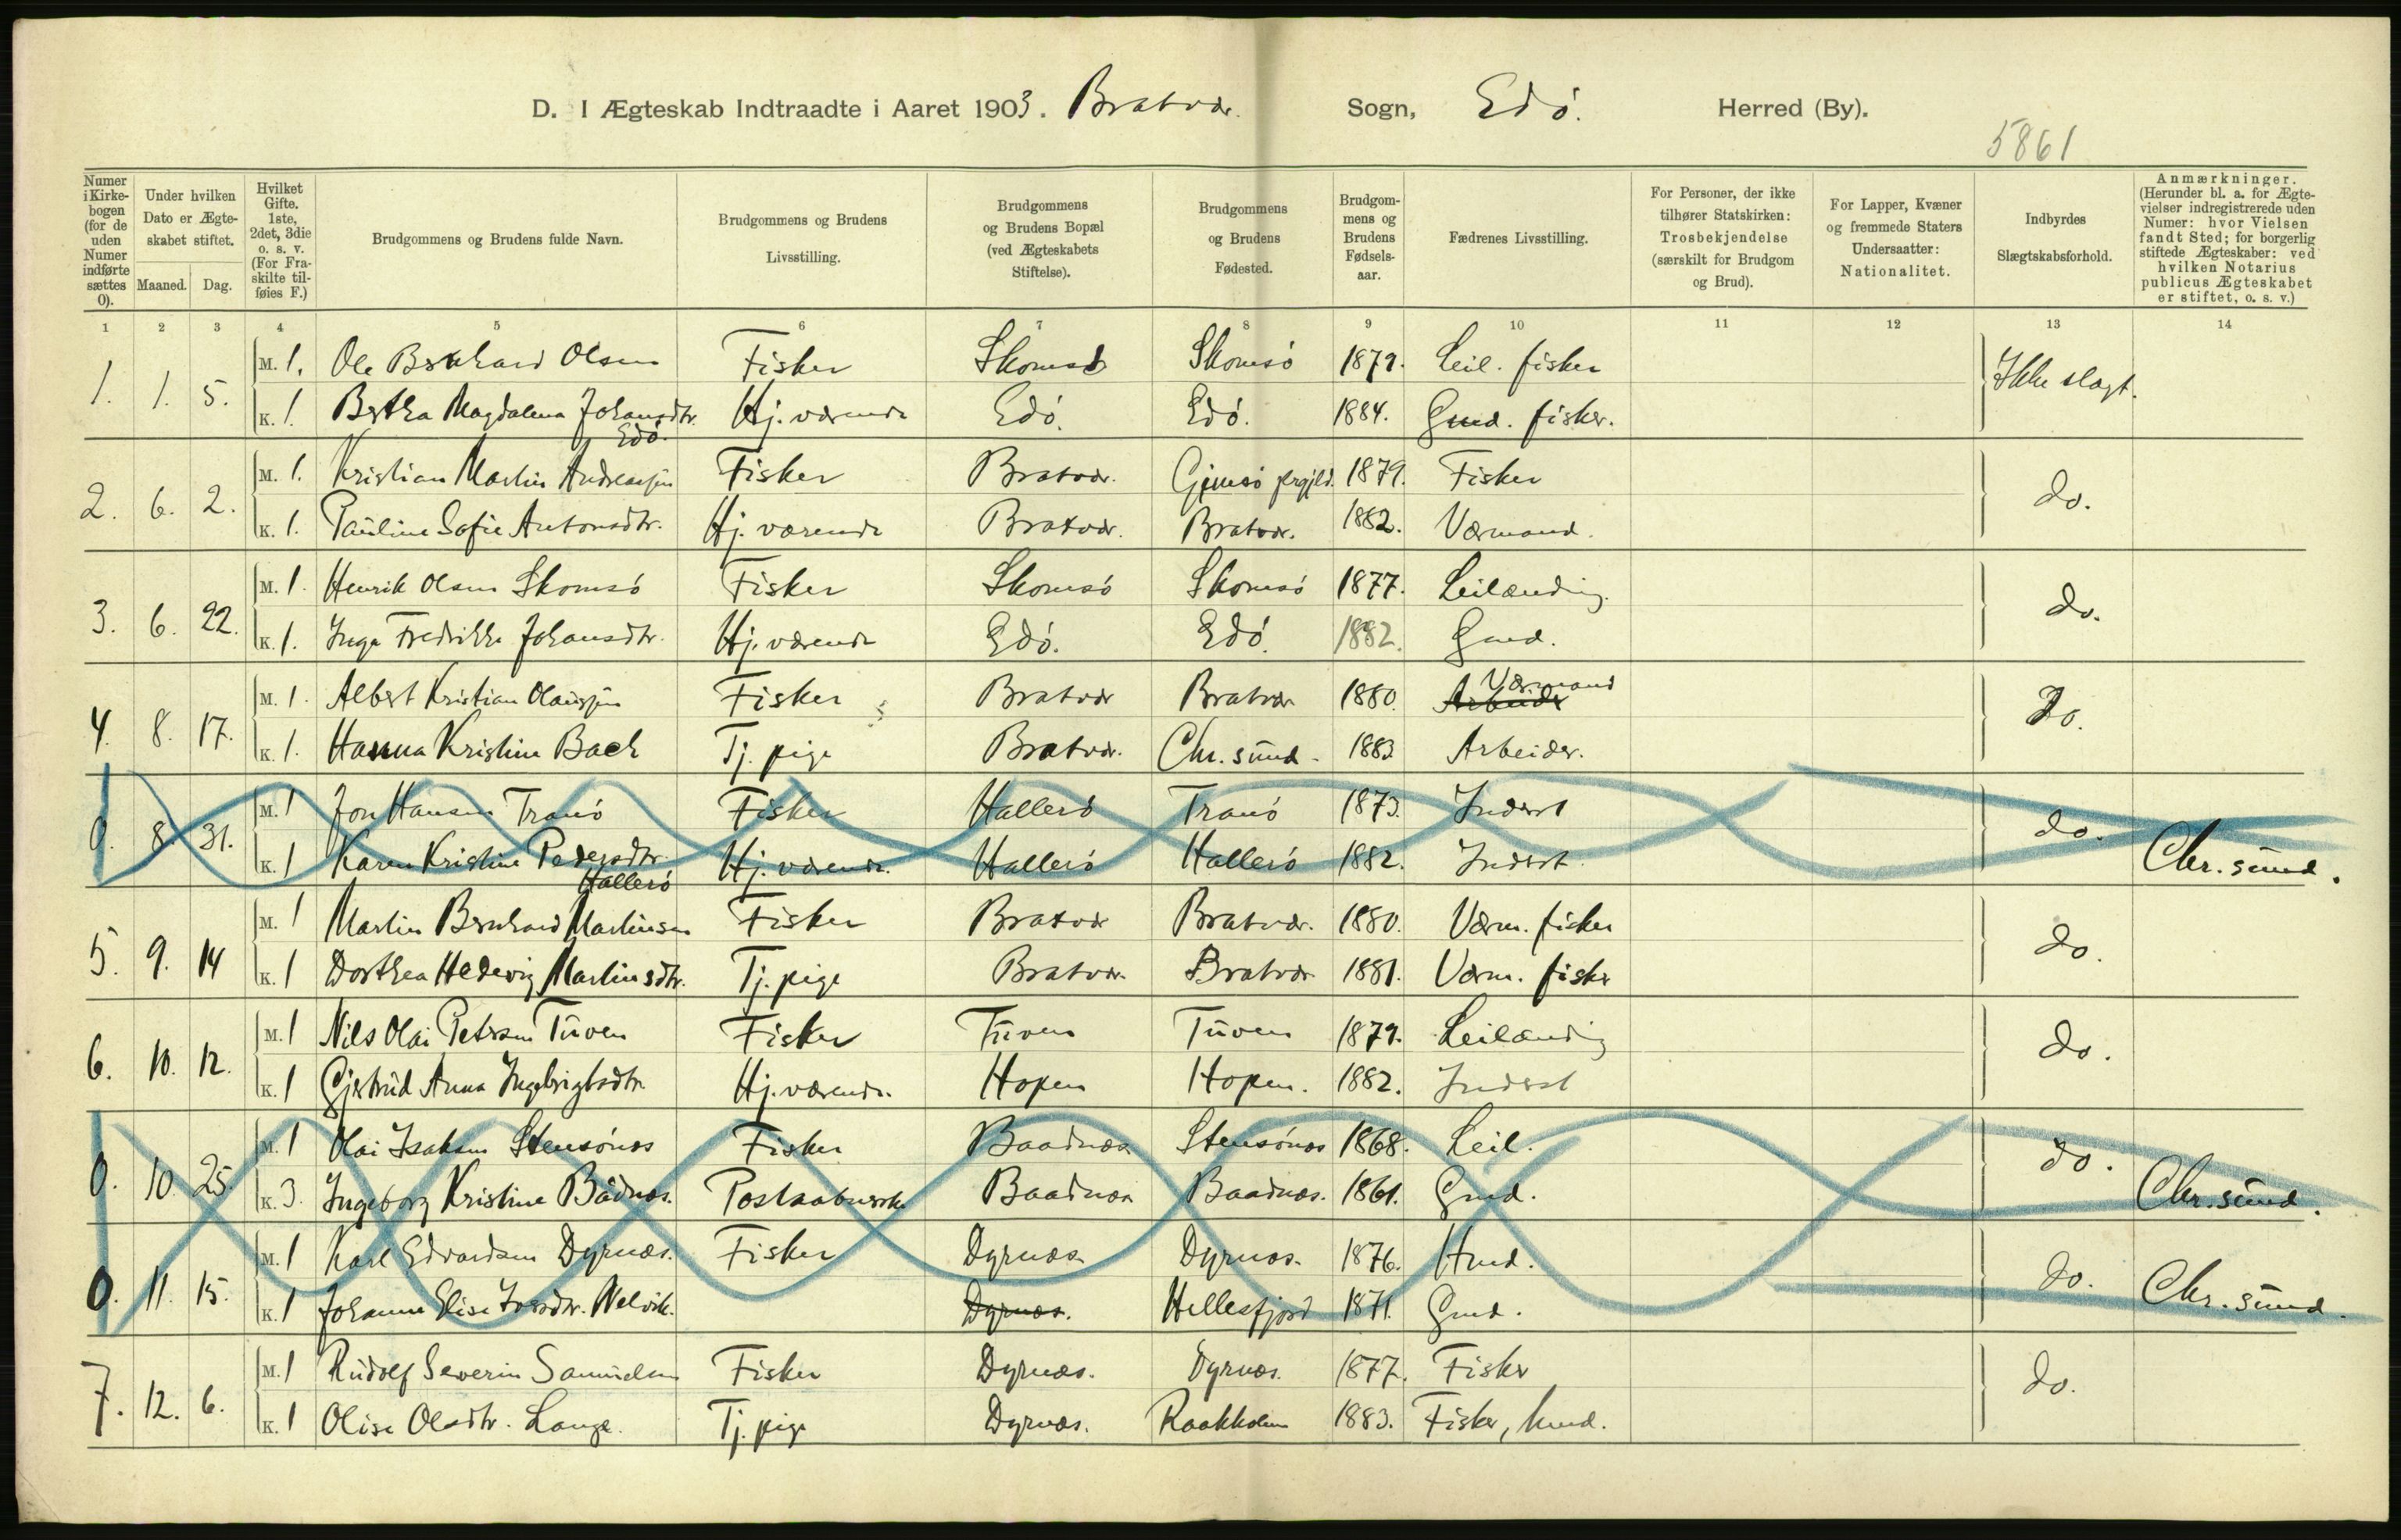 D. I Ægteskab Indtraadte i Aaret 1903. Bratvær. Sogn, Edö. Herred (By).
5861
Numer i Kirkebogen (for de uden Numer indførte sættes 0).
Under hvilken Dato er Ægteskabet stiftet.
Maaned. Dag.
Hvilket Gifte. 1ste, 2det, 3die o. s. v. (For Fraskilte tilføies F.)
Brudgommens og Brudens fulde Navn.
Brudgommens og Brudens Livsstilling.
Brudgommens og Brudens Bopæl (ved Ægteskabets Stiftelse).
Brudgommens og Brudens Fødested.
Brudgommens og Brudens Fødselsaar.
Fædrenes Livsstilling.
For Personer, der ikke tilhører Statskirken: Trosbekjendelse (særskilt for Brudgom og Brud).
For Lapper, Kvæner og fremmede Staters Undersaatter: Nationalitet.
Indbyrdes Slægtskabsforhold.
Anmærkninger. (Herunder bl. a. for Ægtevielser indregistrerede uden Numer: hvor Vielsen fandt Sted; for borgerlig stiftede Ægteskaber: ved hvilken Notarius publicus Ægteskabet er stiftet, o. s. v.)
1 2 3 4 5 6 7 8 9 10 11 12 13 14
1. 1. 5. M. 1. Ole Bernhard Olsen Fisker Skomsö Skomsö 1879. Leil. fisker Ikke slægt.
K. 1. Bertha Magdalena Johansdtr. Edö. Hj. værende Edö. Edö. 1884. Gmd. fisker.
2. 6. 2. M. 1. Kristian Martin Andreassen Fisker Bratvær. Gimsö prgjld. 1879. Fisker do.
K. 1. Pauline Sofie Antonsdtr. Hj. værende Bratvær. Bratvær. 1882. Værmand.
3. 6. 22. M. 1. Henrik Olsen Skomsö Fisker Skomsö Skomsö 1877. Leilænding. do.
K. 1. Inga Fredrikke Johansdtr. Hj. værende Edö. Edö. 1882. Gmd.
4. 8. 17. M. 1. Albert Kristian Olaussen Fisker Bratvær Bratvær 1880. Arbeider Værmand do.
K. 1. Hanna Kristine Bach Tj. pige Bratvær. Chr. sund. 1883 Arbeider.
0. 8. 31. M. 1 Jon Hansen Tranö Fisker Hallerö Tranö 1873. Inderst do. Chr. sund.
K. 1 Karen Kristine Pedersdtr. Hallerö Hj. værende. Hallerö Hallerö 1882. Inderst
5. 9. 14 M. 1 Martin Bernhard Martinsen Fisker Bratvær Bratvær. 1880. Værm. fisker do.
K. 1 Dorthea Hedevig Martinsdtr. Tj. pige Bratvær. Bratvær 1881. Værm. fisker
6. 10. 12. M. 1 Nils Olai Petersen Tuven Fisker Tuven Tuven 1879. Leilænding do.
K. 1 Gjertrud Anna Ingebrigtsdtr. Hj. værende. Hopen Hopen. 1882. Inderst
0. 10. 25. M. 1 Olai Isaksen Stensönæs Fisker Baadnæs Stensönæs 1868. Leil. do. Chr. sund.
K. 3. Ingeborg Kristine Bådnæs. Postaabnersk. Baadnæs Baadnæs. 1861. Gmd.
0. 11. 15. M. 1 Karl Edvardsen Dyrnæs. Fisker Dyrnæs Dyrnæs. 1876. Hmd. do. Chr. sund.
K. 1 Johanne Elise Welvik. Dyrnæs. Hellesfjord 1871. Gmd.
7. 12. 6. M. 1 Rudolf Severin Samuelsen Fisker Dyrnæs. Dyrnæs. 1877. Fisker do.
K. 1 Olise Olsdtr. Lange. Tj. pige Dyrnæs. Raakholm 1883. Fisker, hmd.